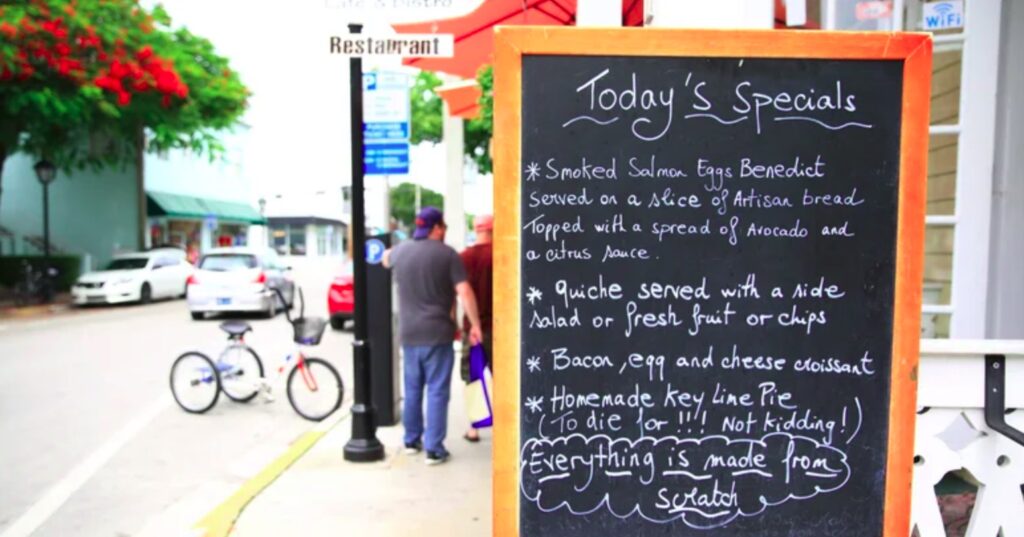 Café & Bistro
Restaurant
WiFi
P
P
Today's Specials
* Smoked Salmon Eggs Benedict
served on a slice of Artisan bread
Topped with a spread of Avocado and
a citrus sauce.
* Quiche served with a side
salad or fresh fruit or chips
* Bacon, egg and cheese croissant
* Homemade Key Lime Pie
(To die for !!! Not kidding!)
Everything is made from
scratch